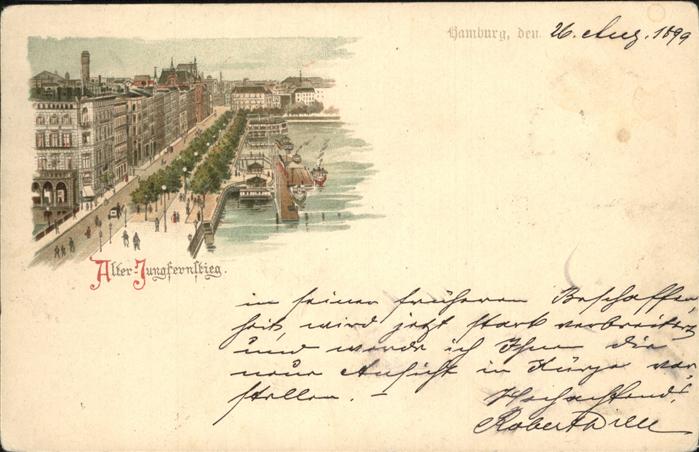 Hamburg, den 26. Aug. 1899
Alter-Jungfernstieg.
in seiner früheren Beschaffen,
heit, wird jetzt stark verbreitert
und werde ich Ihnen die
neue Ansicht in Kürze vor,
stellen. –
Hochachtend!
Robert